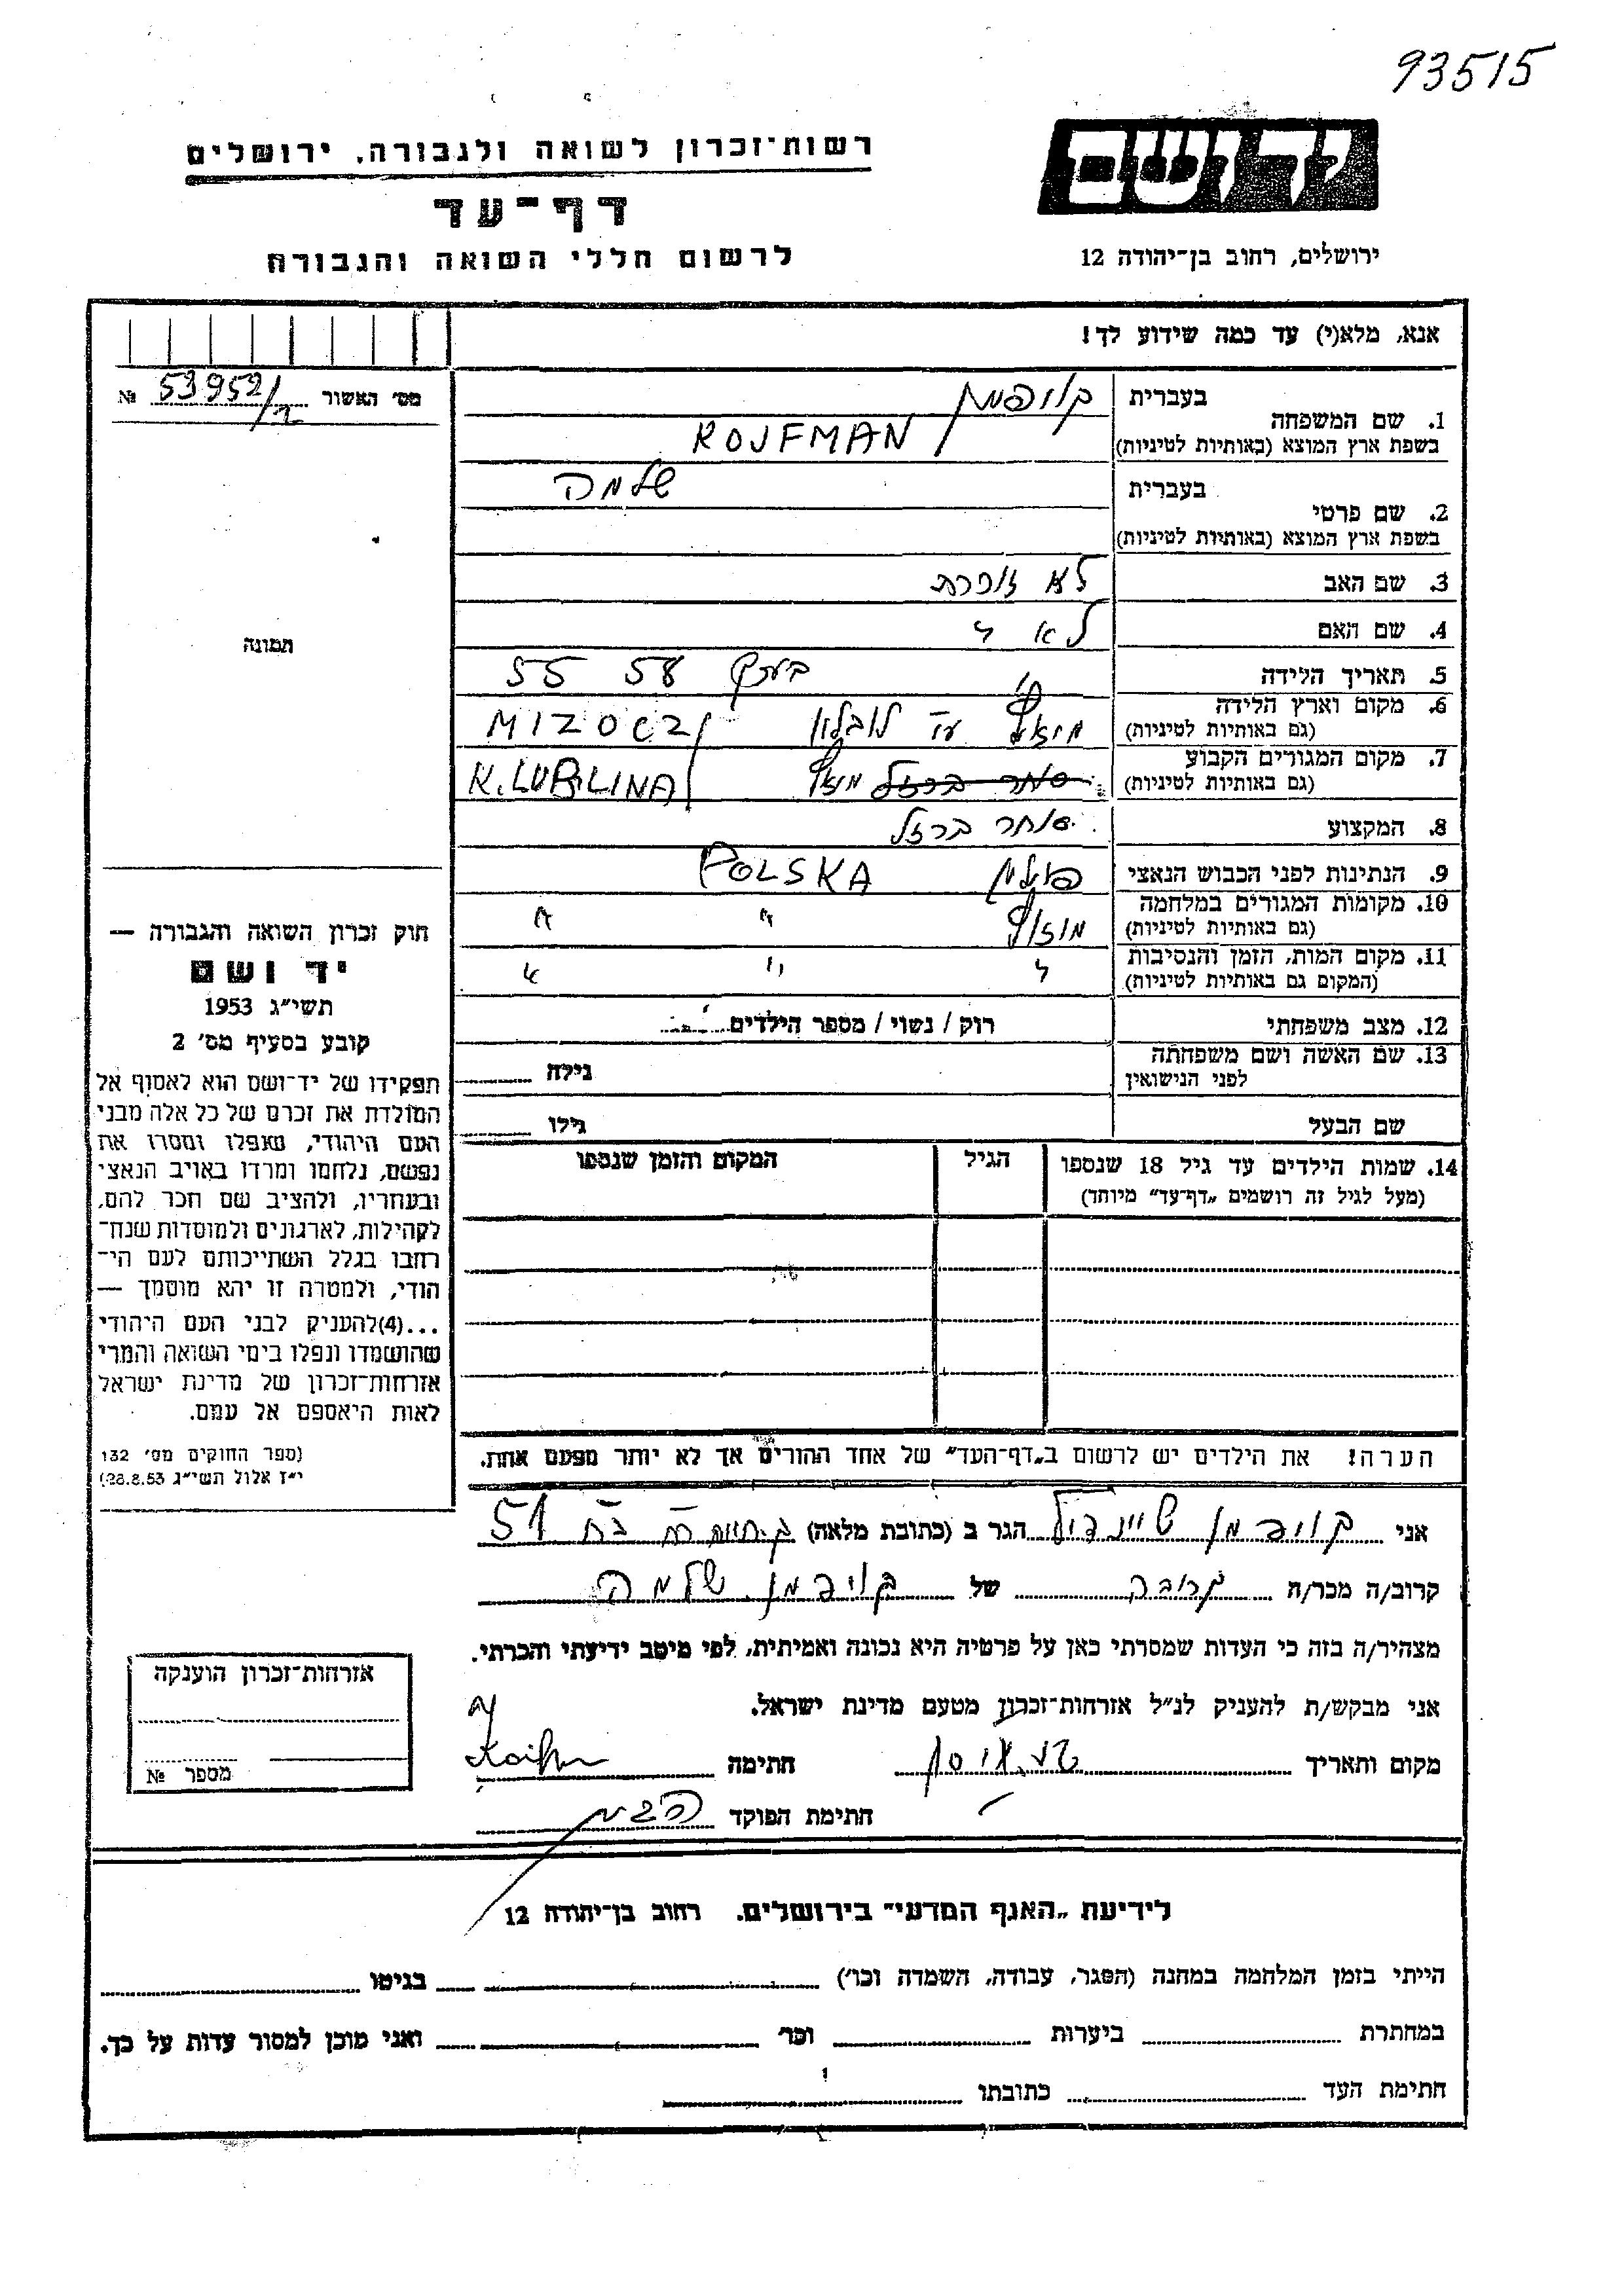 93515
יד ושם
רשות־זכרון לשואה ולגבורה, ירושלים
דף־עד
ירושלים, רחוב בן־יהודה 12
לרשום חללי השואה והגבורה
אנא, מלא(י) עד כמה שידוע לך!
מס׳ האשור 53952 №
1. שם המשפחה
בעברית קויפמן
בשפת ארץ המוצא (באותיות לטיניות) KOJFMAN
2. שם פרטי
בעברית שלמה
בשפת ארץ המוצא (באותיות לטיניות)
3. שם האב לא זוכרת
4. שם האם לא
5. תאריך הלידה בערך 58 55
6. מקום וארץ הלידה
(גם באותיות לטיניות) עד לובלין MIZOCZ
7. מקום המגורים הקבוע
(גם באותיות לטיניות) סוחר ברזל K. LUBLINA
8. המקצוע סוחר ברזל
9. הנתינות לפני הכבוש הנאצי פולין POLSKA
10. מקומות המגורים במלחמה
(גם באותיות לטיניות) " "
11. מקום המות, הזמן והנסיבות
(המקום גם באותיות לטיניות) " "
12. מצב משפחתי רוק / נשוי / מספר הילדים
13. שם האשה ושם משפחתה
לפני הנישואין גילה
שם הבעל גילו
14. שמות הילדים עד גיל 18 שנספו
(מעל לגיל זה רושמים „דף־עד״ מיוחד)
הגיל
המקום והזמן שנספו
הערה! את הילדים יש לרשום ב„דף־העד״ של אחד ההורים אך לא יותר מפעם אחת.
תמונה
חוק זכרון השואה והגבורה —
יד ושם
תשי״ג 1953
קובע בסעיף מס׳ 2
תפקידו של יד־ושם הוא לאסוף אל
המולדת את זכרם של כל אלה מבני
העם היהודי, שנפלו ומסרו את
נפשם, נלחמו ומרדו באויב הנאצי
ובעוזריו, ולהציב שם וזכר להם,
לקהילות, לארגונים ולמוסדות שנח־
רבו בגלל השתייכותם לעם הי־
הודי, ולמטרה זו יהא מוסמך —
...(4) להעניק לבני העם היהודי
שהושמדו ונפלו בימי השואה והמרי
אזרחות־זכרון של מדינת ישראל
לאות היאספם אל עמם.
(ספר החוקים מס׳ 132
י״ז אלול תשי״ג 28.8.53)
אני קויפמן שיינדל הגר ב (כתובת מלאה) 51
קרוב/ה מכר/ה קרובה של קויפמן שלמה
מצהיר/ה בזה כי העדות שמסרתי כאן על פרטיה היא נכונה ואמיתית, לפי מיטב ידיעתי והכרתי.
אני מבקש/ת להעניק לנ״ל אזרחות־זכרון מטעם מדינת ישראל.
מקום ותאריך חתימה
חתימת הפוקד
אזרחות־זכרון הוענקה
מספר №
לידיעת „האגף המדעי״ בירושלים. רחוב בן־יהודה 12
הייתי בזמן המלחמה במחנה (הסגר, עבודה, השמדה וכו׳) בגיטו
במחתרת ביערות וכו׳ ואני מוכן למסור עדות על כך.
חתימת העד כתובתו